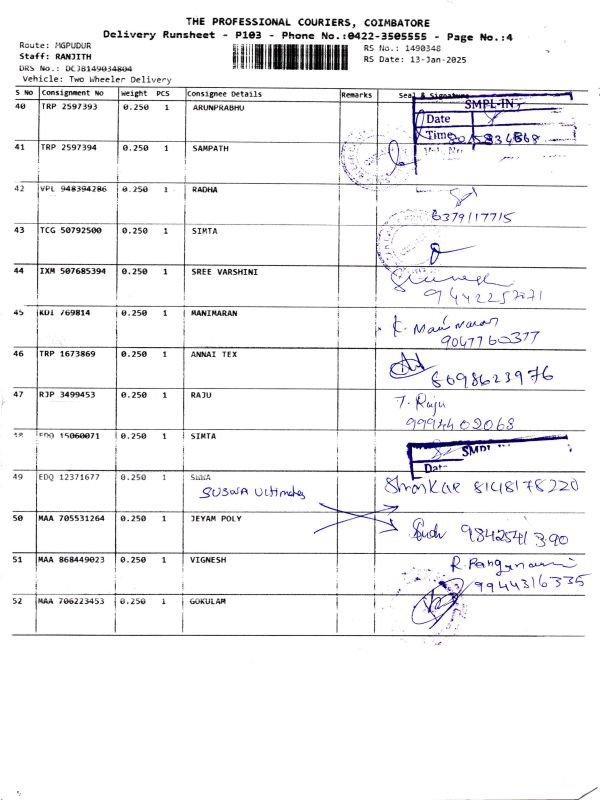 THE PROFESSIONAL COURIERS, COIMBATORE
Delivery Runsheet - P103 - Phone No.:0422-3505555 - Page No.:4
Route: MGPUDUR RS No.: 1490348
Staff: RANJITH RS Date: 13-Jan-2025
DRS No.: DCJB149034804
Vehicle: Two Wheeler Delivery
S No Consignment No Weight PCS Consignee Details Remarks Seal & Signature
40 TRP 2597393 0.250 1 ARUNPRABHU SMPL-IN
Date
Time
41 TRP 2597394 0.250 1 SAMPATH
42 VPL 948394286 0.250 1 RADHA
6379117715
43 TCG 50792500 0.250 1 SIMTA
44 IXM 507685394 0.250 1 SREE VARSHINI
45 KDI 769814 0.250 1 MANIMARAN K. Manimaran
9047760377
46 TRP 1673869 0.250 1 ANNAI TEX
8098623976
47 RJP 3499453 0.250 1 RAJU T. Raju
9994402068
48 EDQ 15060071 0.250 1 SIMTA
49 EDQ 12371677 0.250 1 8148178220
SUSWA Ultimates
50 MAA 705531264 0.250 1 JEYAM POLY 9842541390
51 MAA 868449023 0.250 1 VIGNESH
9944316335
52 MAA 706223453 0.250 1 GOKULAM